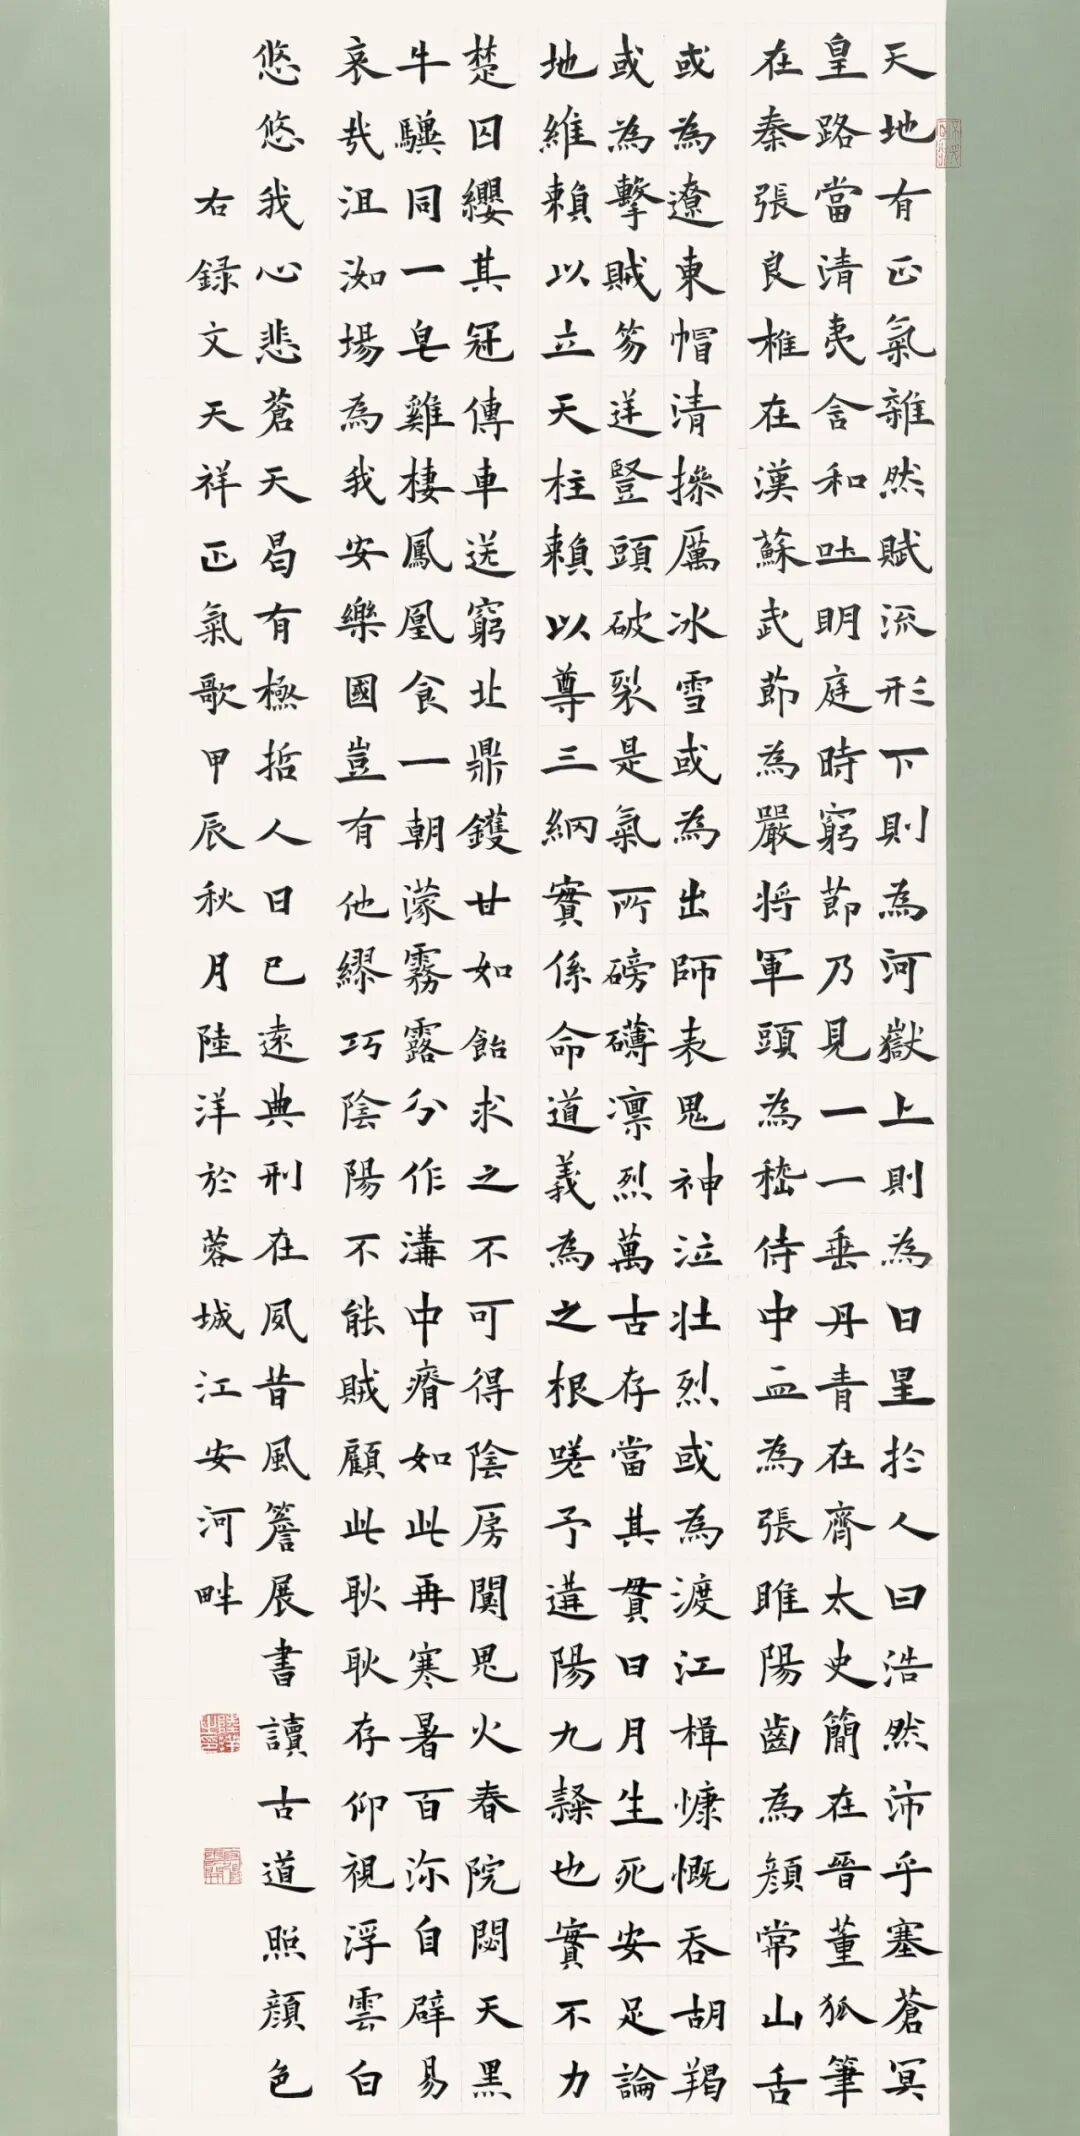 天地有正氣雜然賦流形下則為河嶽上則為日星於人曰浩然沛乎塞蒼冥
皇路當清夷含和吐明庭時窮節乃見一一垂丹青在齊太史簡在晉董狐筆
在秦張良椎在漢蘇武節為嚴將軍頭為嵇侍中血為張睢陽齒為顏常山舌
或為遼東帽清操厲冰雪或為出師表鬼神泣壯烈或為渡江楫慷慨吞胡羯
或為擊賊笏逆豎頭破裂是氣所磅礴凛烈萬古存當其貫日月生死安足論
地維賴以立天柱賴以尊三綱實係命道義為之根嗟予遘陽九隸也實不力
楚囚纓其冠傳車送窮北鼎鑊甘如飴求之不可得陰房闃鬼火春院閟天黑
牛驥同一皂雞棲鳳凰食一朝濛霧露分作溝中瘠如此再寒暑百沴自辟易
哀哉沮洳場為我安樂國豈有他繆巧陰陽不能賊顧此耿耿存仰視浮雲白
悠悠我心悲蒼天曷有極哲人日已遠典刑在夙昔風簷展書讀古道照顏色
右錄文天祥正氣歌甲辰秋月陸洋於蓉城江安河畔